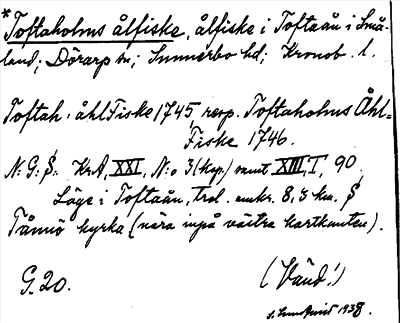 *Toftaholms ålfiske, ålfiske i Toftaån i Små-
land; Dörarp sn; Sunnerbo hd; Kronob. l.
Toftah. åhl Fiske 1745, resp. Toftaholms Åhl=
Fiske 1746.
N: G: S: Kr.A, XXI, N:o 3 (kop.) samt XIII, I, 90
Läge i Toftaån, trol. omkr. 8,5 km. S
Tånnö kyrka (nära inpå västra kartkanten).
G. 20.
(Vänd!)
s. Lundquist 1938.